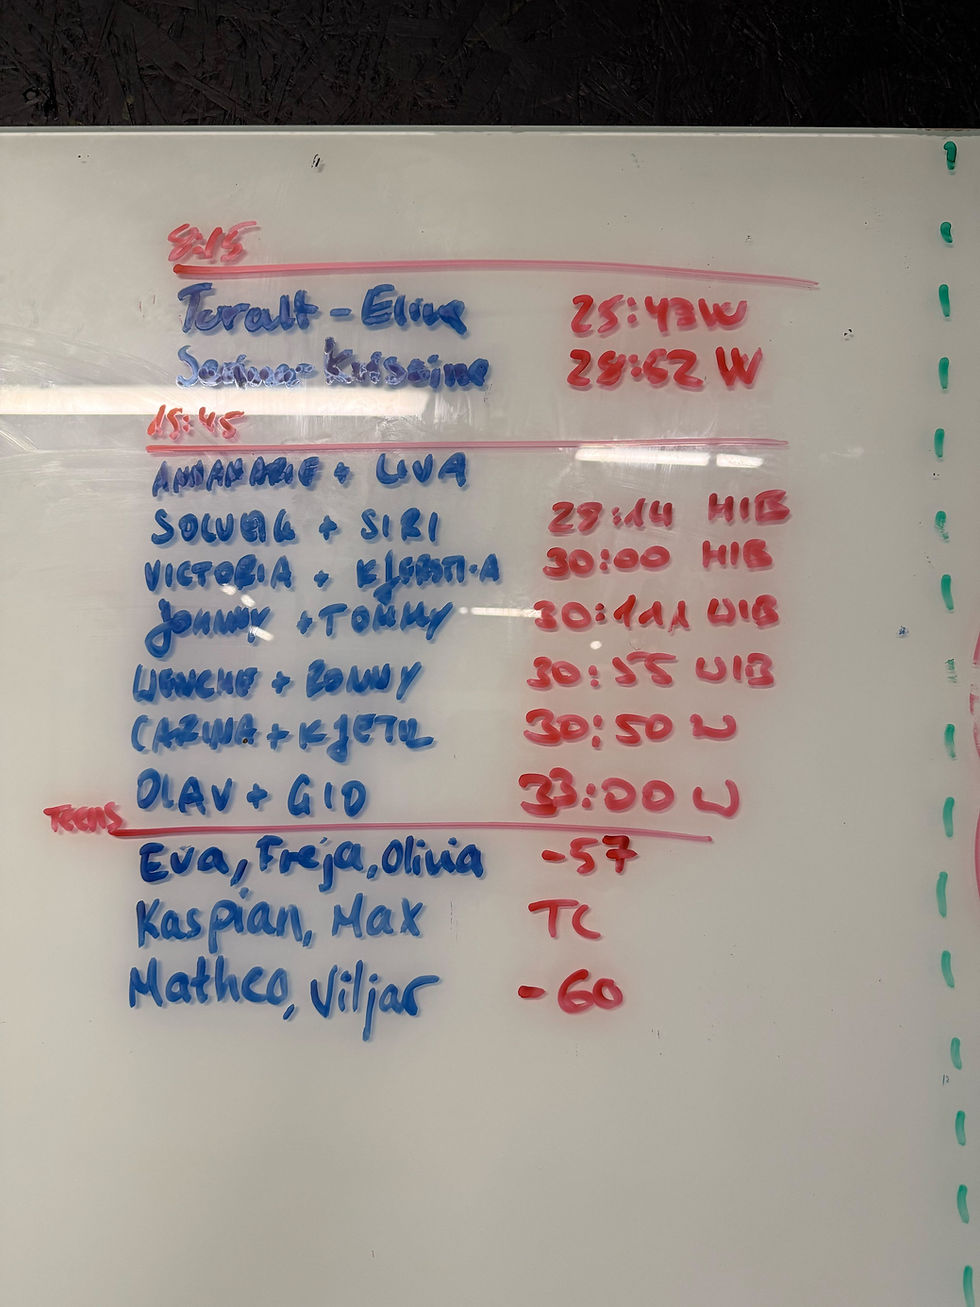 8:15
Toralt - Eline 25:43 W
Kristine 28:52 W
15:45
ANNAMARIE + LIVA
SOLVEIG + SIRI 29:14 HIB
VICTORIA + KJERSTI-A 30:00 HIB
JOHNNY + TOMMY 30:11 UIB
WENCHE + RONNY 30:55 UIB
CARINA + KJETIL 30:50 U
OLAV + GIO 33:00 U
Teens
Eva, Freja, Olivia -57
Kaspian, Max TC
Matheo, Viljar -60